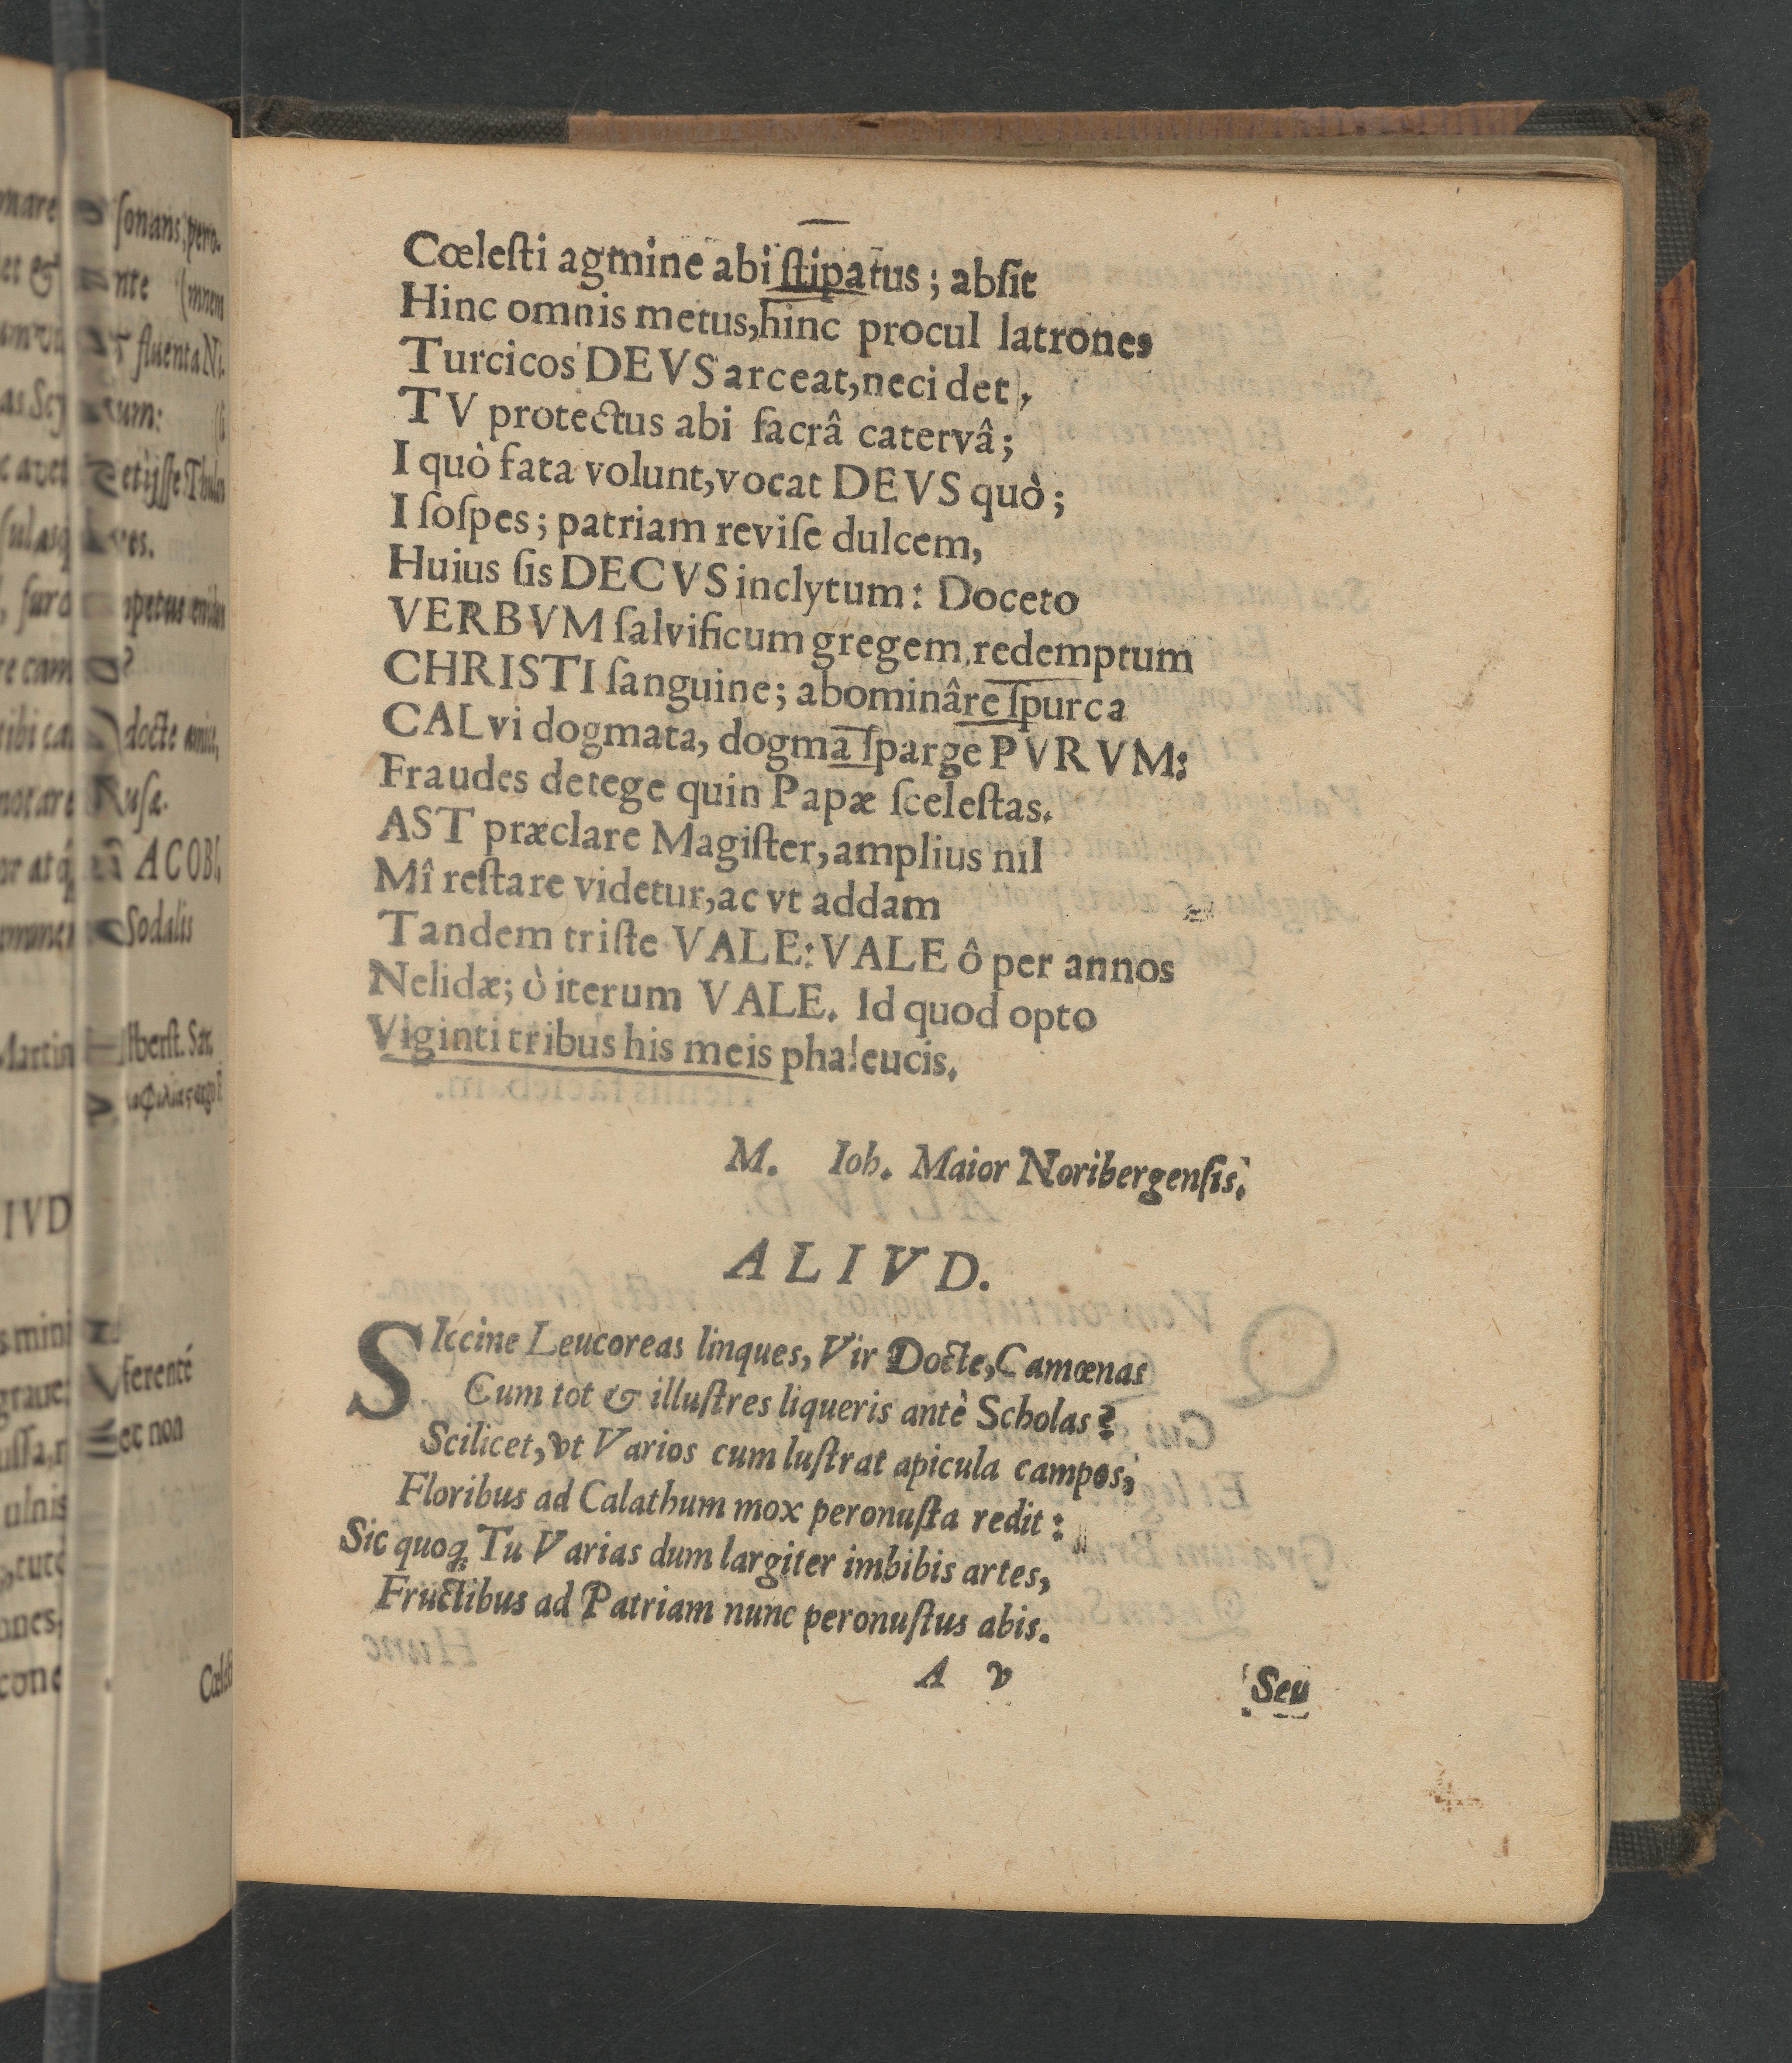 Cœleſti agmine abi ſtipatus; abſit
Hinc omnis metus, hinc procul latrones
Turcicos DEVS arceat, neci det,
TV protectus abi ſacrâ catervâ;
I quò fata volunt, vocat DEVS quò;
I ſoſpes; patriam reviſe dulcem,
Huius ſis DECVS inclytum: Doceto
VERBVM ſalvificum gregem redemptum
CHRISTI ſanguine; abominâre ſpurca
CALvi dogmata, dogma ſparge PVRVM:
Fraudes detege quin Papæ ſceleſtas.
AST præclare Magiſter, amplius nil
Mî reſtare videtur, ac vt addam
Tandem triſte VALE: VALE ô per annos
Nelidæ; ò iterum VALE. Id quod opto
Viginti tribus his meis phaleucis.
M. Ioh. Maior Noribergenſis.
ALIVD.
SIccine Leucoreas linques, Vir Docte, Camœnas
Cum tot & illuſtres liqueris antè Scholas?
Scilicet, vt Varios cum luſtrat apicula campos,
Floribus ad Calathum mox peronuſta redit:
Sic quoq; Tu Varias dum largiter imbibis artes,
Fructibus ad Patriam nunc peronuſtus abis.
A v
Seu